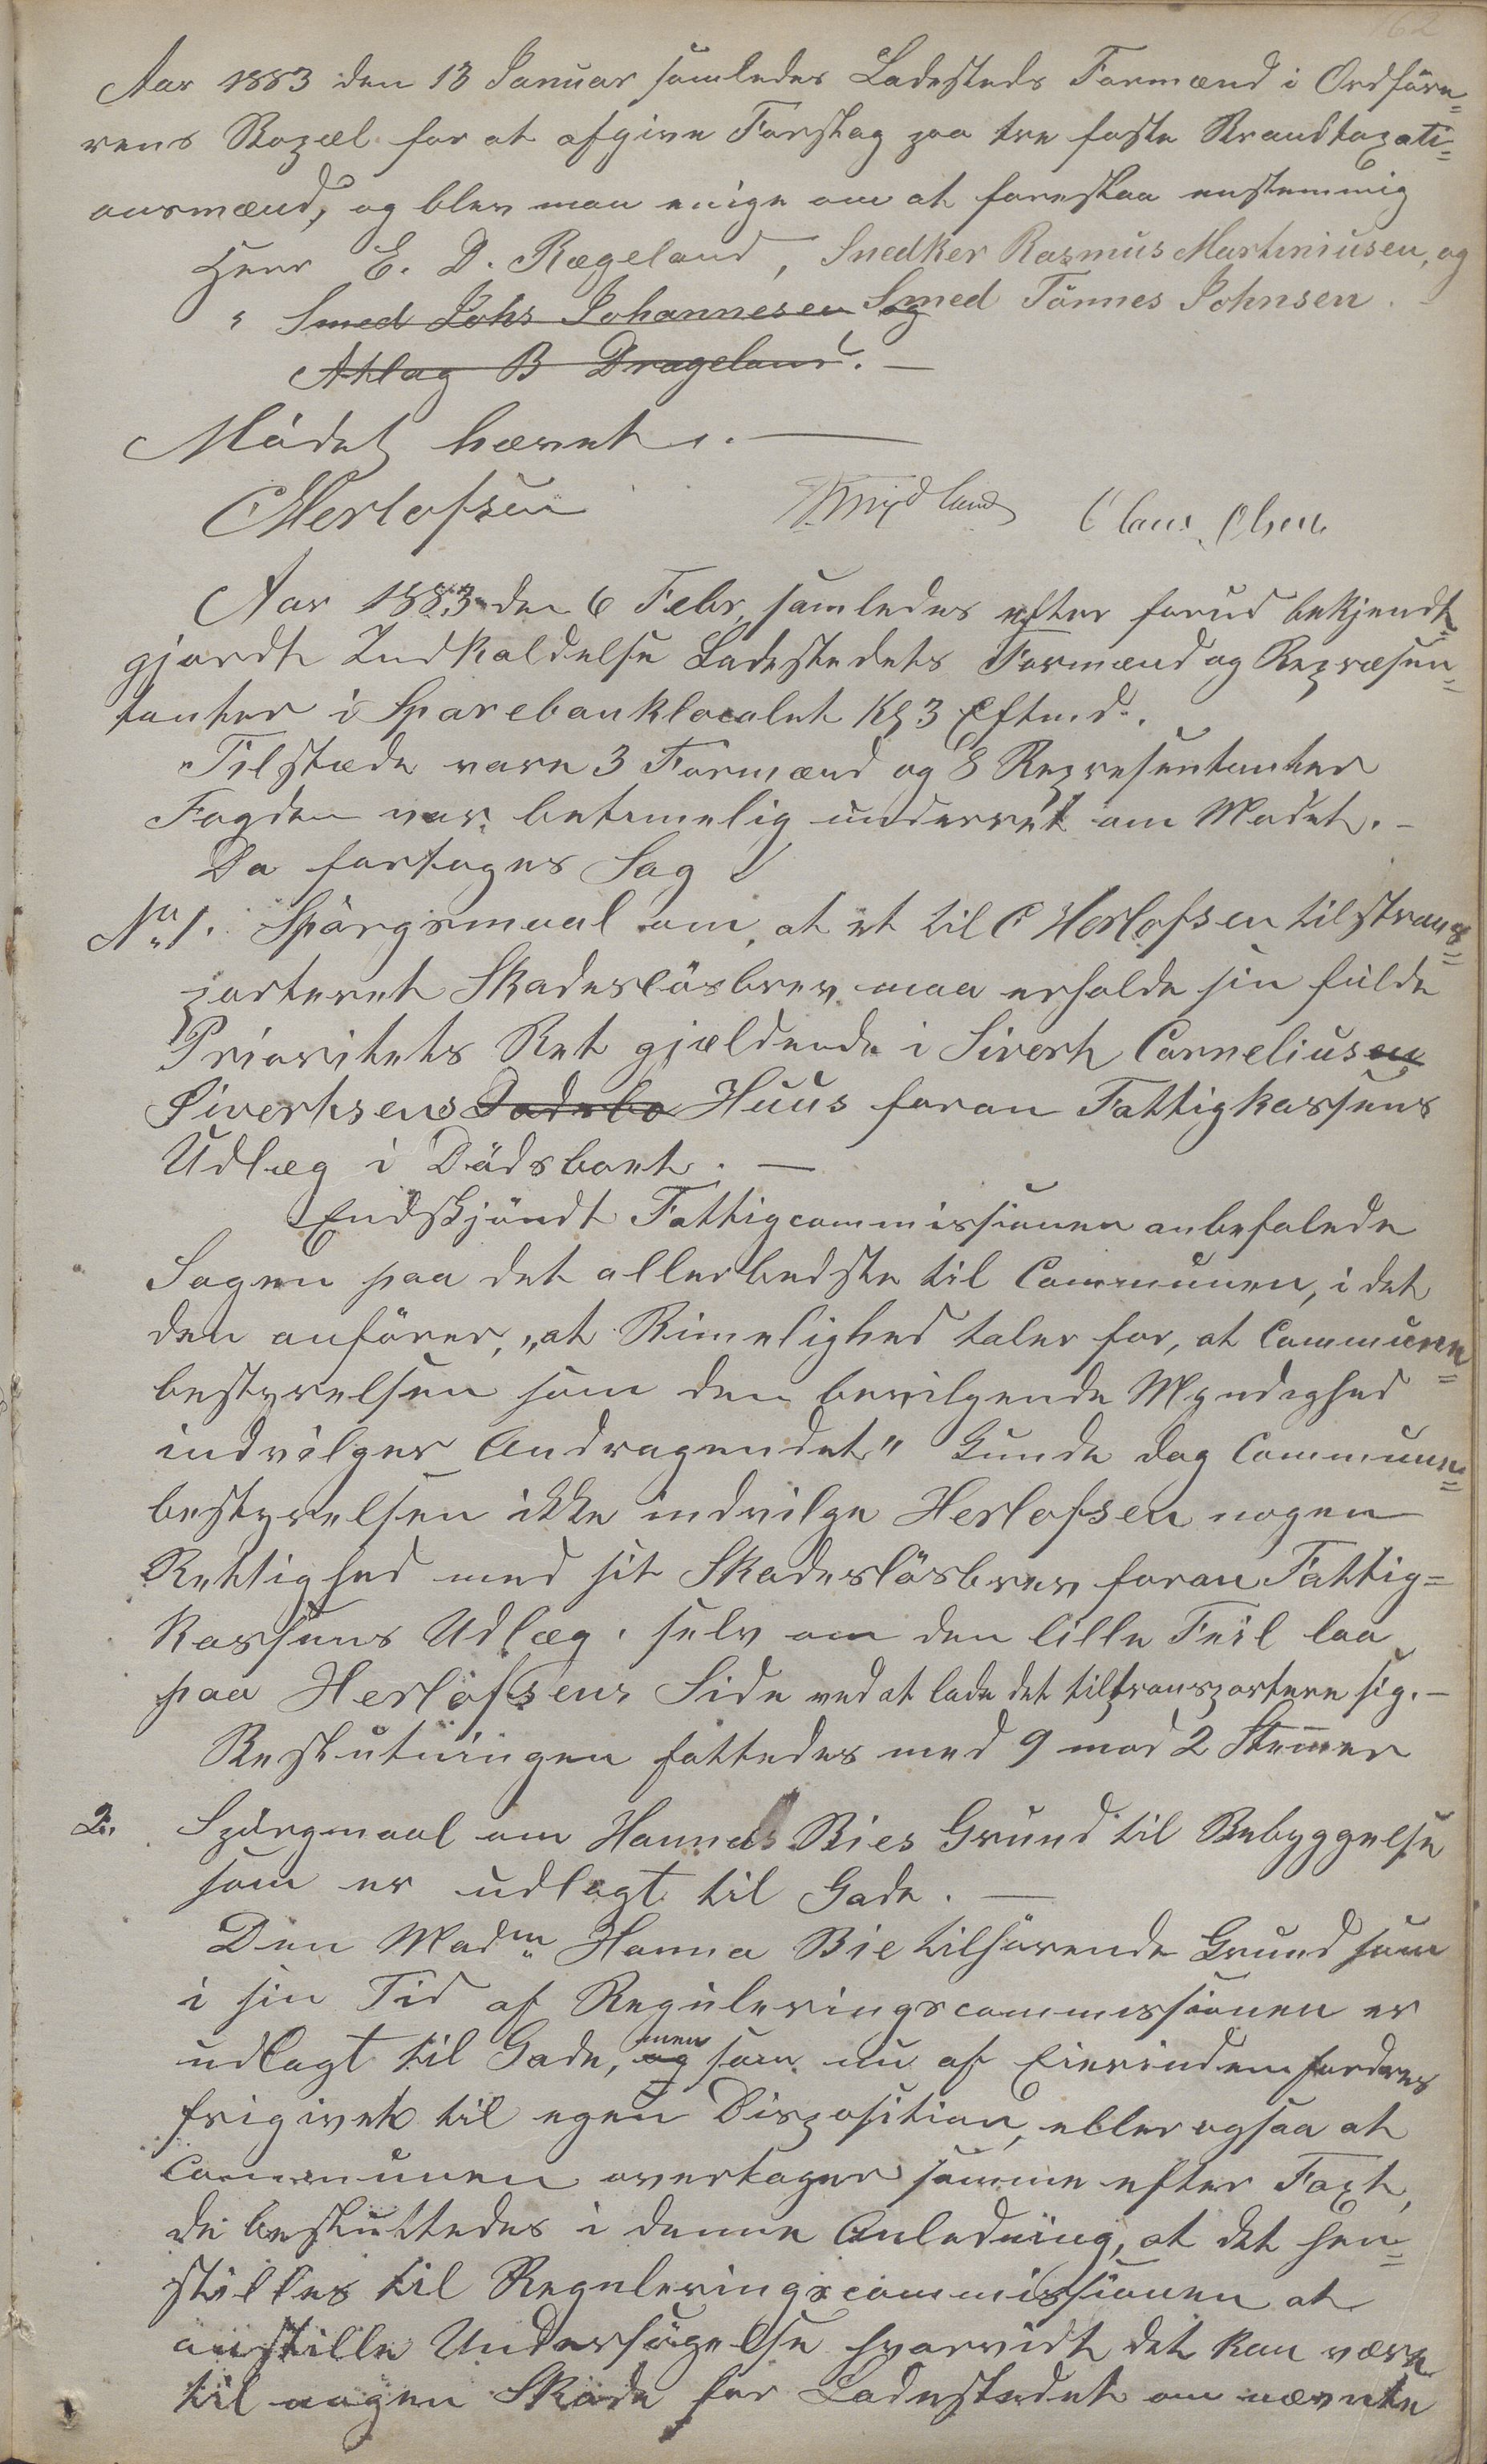 162
Aar 1883 den 13 Januar samledes Ladesteds Formænd i Ordföre=
rens Bopæl for at afgive Forslag paa tre faste Brandtaxati=
onsmænd, og blev man enige om at foreslaa enstemmig
Herr E. D. Rægeland, Snedker Rasmus Martiniusen, og
" Smed Johs Johannesen og Smed Tönnes Johnsen.
Atlag B Drageland. —
Mödet hævet. —
C Herlofsen Claus Olsen
Aar 1883 den 6 Febr, samledes efter forud bekjendt=
gjordt Indkaldelse Ladestedets Formænd og Repræsen=
tanter i Sparebanklocalet Kl 3 Eftmd.
Tilstæde vare 3 Formænd og 8 Representanter
Fogden var betimelig underret om Mödet. —
Da fortoges Sag
No 1. Spörgsmaal om, at et til C Herlofsen tilstrans=
porteret Skadeslösbrev maa erholde sin fulde
Prioritets Ret gjældende i Sivert Corneliusen
Sivertsens Dødsbo Huus foran Fattigkassens
Udlæg i Dödsboet. —
Endskjöndt Fattigcommissionen anbefalede
Sagen paa det allerbedste til Communen, i det
den anförer, „at Rimelighed taler for, at Commune=
bestyrelsen som den bevilgende Myndighed
indvilger Andragendet" Kunde dog Commune=
bestyrelsen ikke indvilge Herlofsen nogen
Rettighed med sit Skadeslösbrev foran Fattig=
kassens Udlæg, selv om den lille Feil laa
paa Herlofsens Side ved at lade det tiltransportere sig. —
Beslutningen fattedes med 9 mod 2 Stemmer
2. Spörgmaal om Hannas Bies Grund til Bebyggelse
som er udlagt til Gade. —
Den Madm Hanna Bie tilhörende Grund som
i sin Tid af Reguleringscommissionen er
udlagt til Gade, og men som nu af Eierinden fordres
frigivet til egen Disposition, eller ogsaa at
Communen overtager samme efter Taxt,
de besluttedes i denne Anledning, at det hen=
stilles til Reguleringscommissionen at
anstille Undersögelse hvorvidt det kan være
til nogen Skade for Ladestedet om nævnte